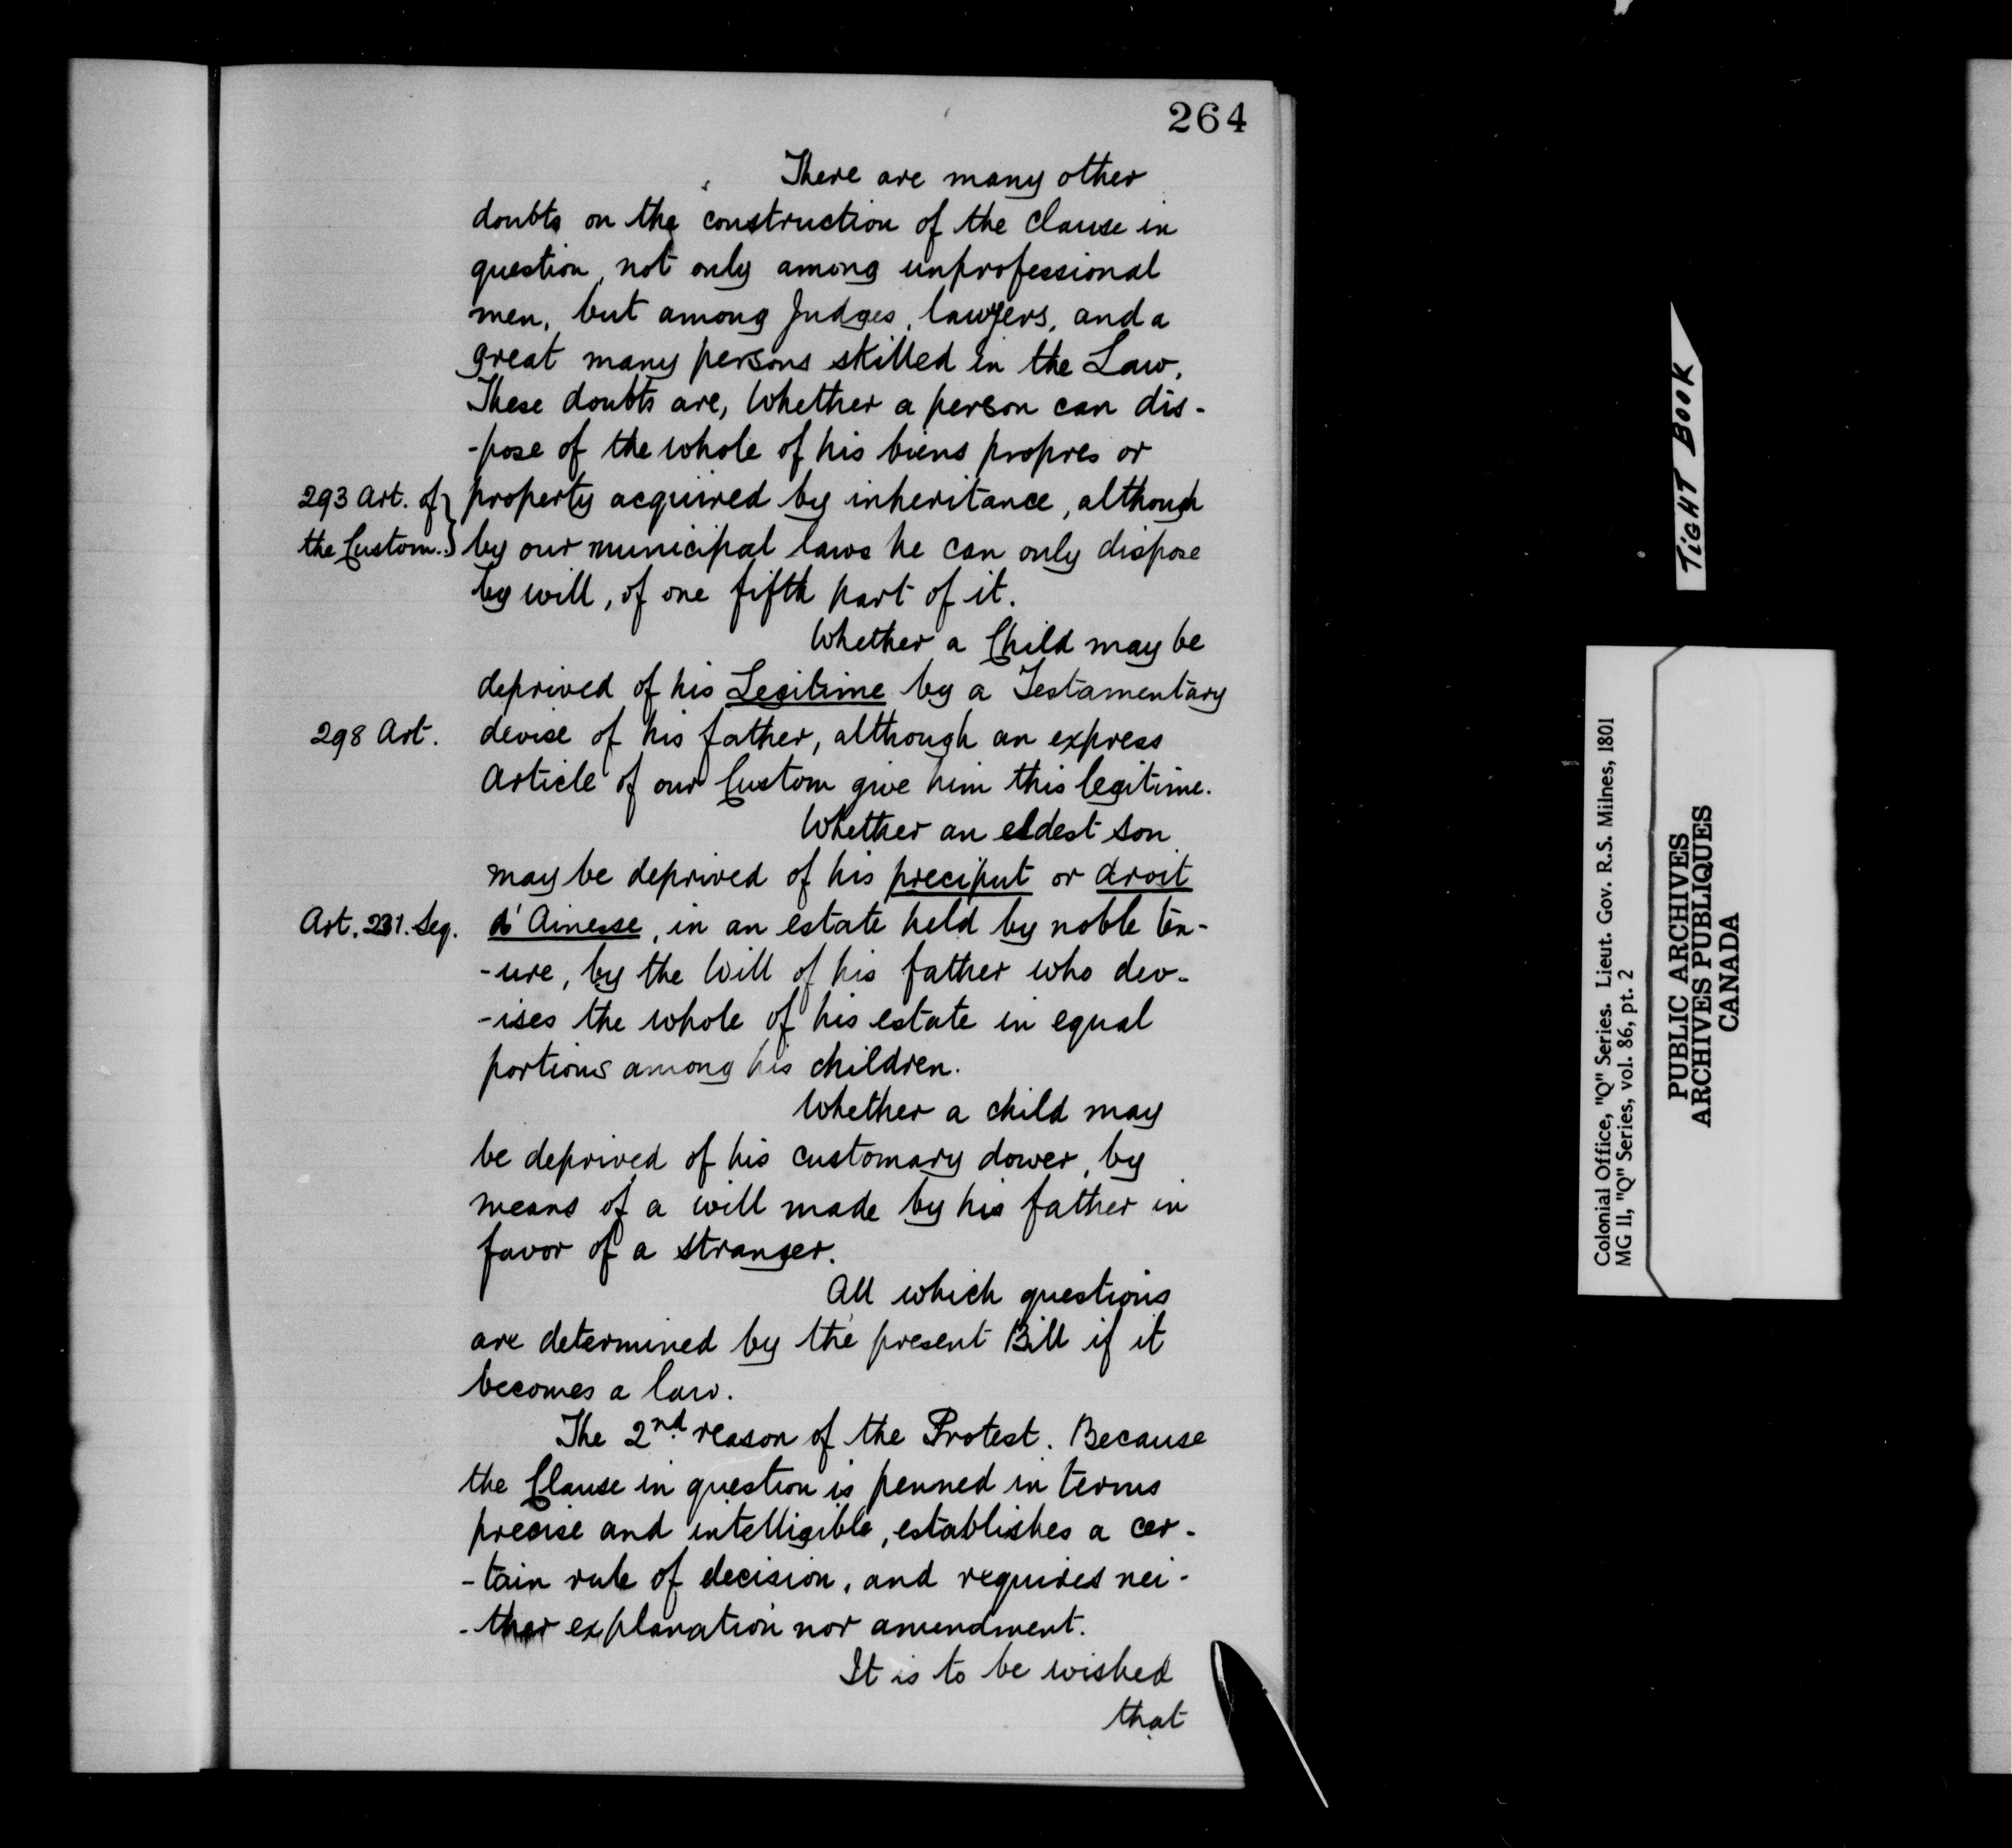 264
There are many other
doubts on the construction of the Clause in
question, not only among unprofessional
men, but among Judges, lawyers, and a
great many persons skilled in the Law.
These doubts are, Whether a person can dis-
-pose of the whole of his biens propres or
293 Art. of } property acquired by inheritance, although
the Custom. } by our municipal laws he can only dispose
by will, of one fifth part of it.
Whether a Child may be
deprived of his Legitime by a Testamentary
298 Art. devise of his father, although an express
Article of our Custom give him this legitime.
Whether an eldest son
may be deprived of his preciput or droit
Art. 231. Seq. d'Ainesse, in an estate held by noble ten-
-ure, by the Will of his father who dev-
-ises the whole of his estate in equal
portions among his children.
Whether a child may
be deprived of his customary dower, by
means of a will made by his father in
favor of a stranger.
All which questions
are determined by the present Bill if it
becomes a law.
The 2nd reason of the Protest. Because
the Clause in question is penned in terms
precise and intelligible, establishes a cer-
-tain rule of decision, and requires nei-
-ther explanation nor amendment.
It is to be wished
that
TIGHT BOOK
Colonial Office, "Q" Series. Lieut. Gov. R.S. Milnes, 1801
MG 11, "Q" Series, vol. 86, pt. 2
PUBLIC ARCHIVES
ARCHIVES PUBLIQUES
CANADA